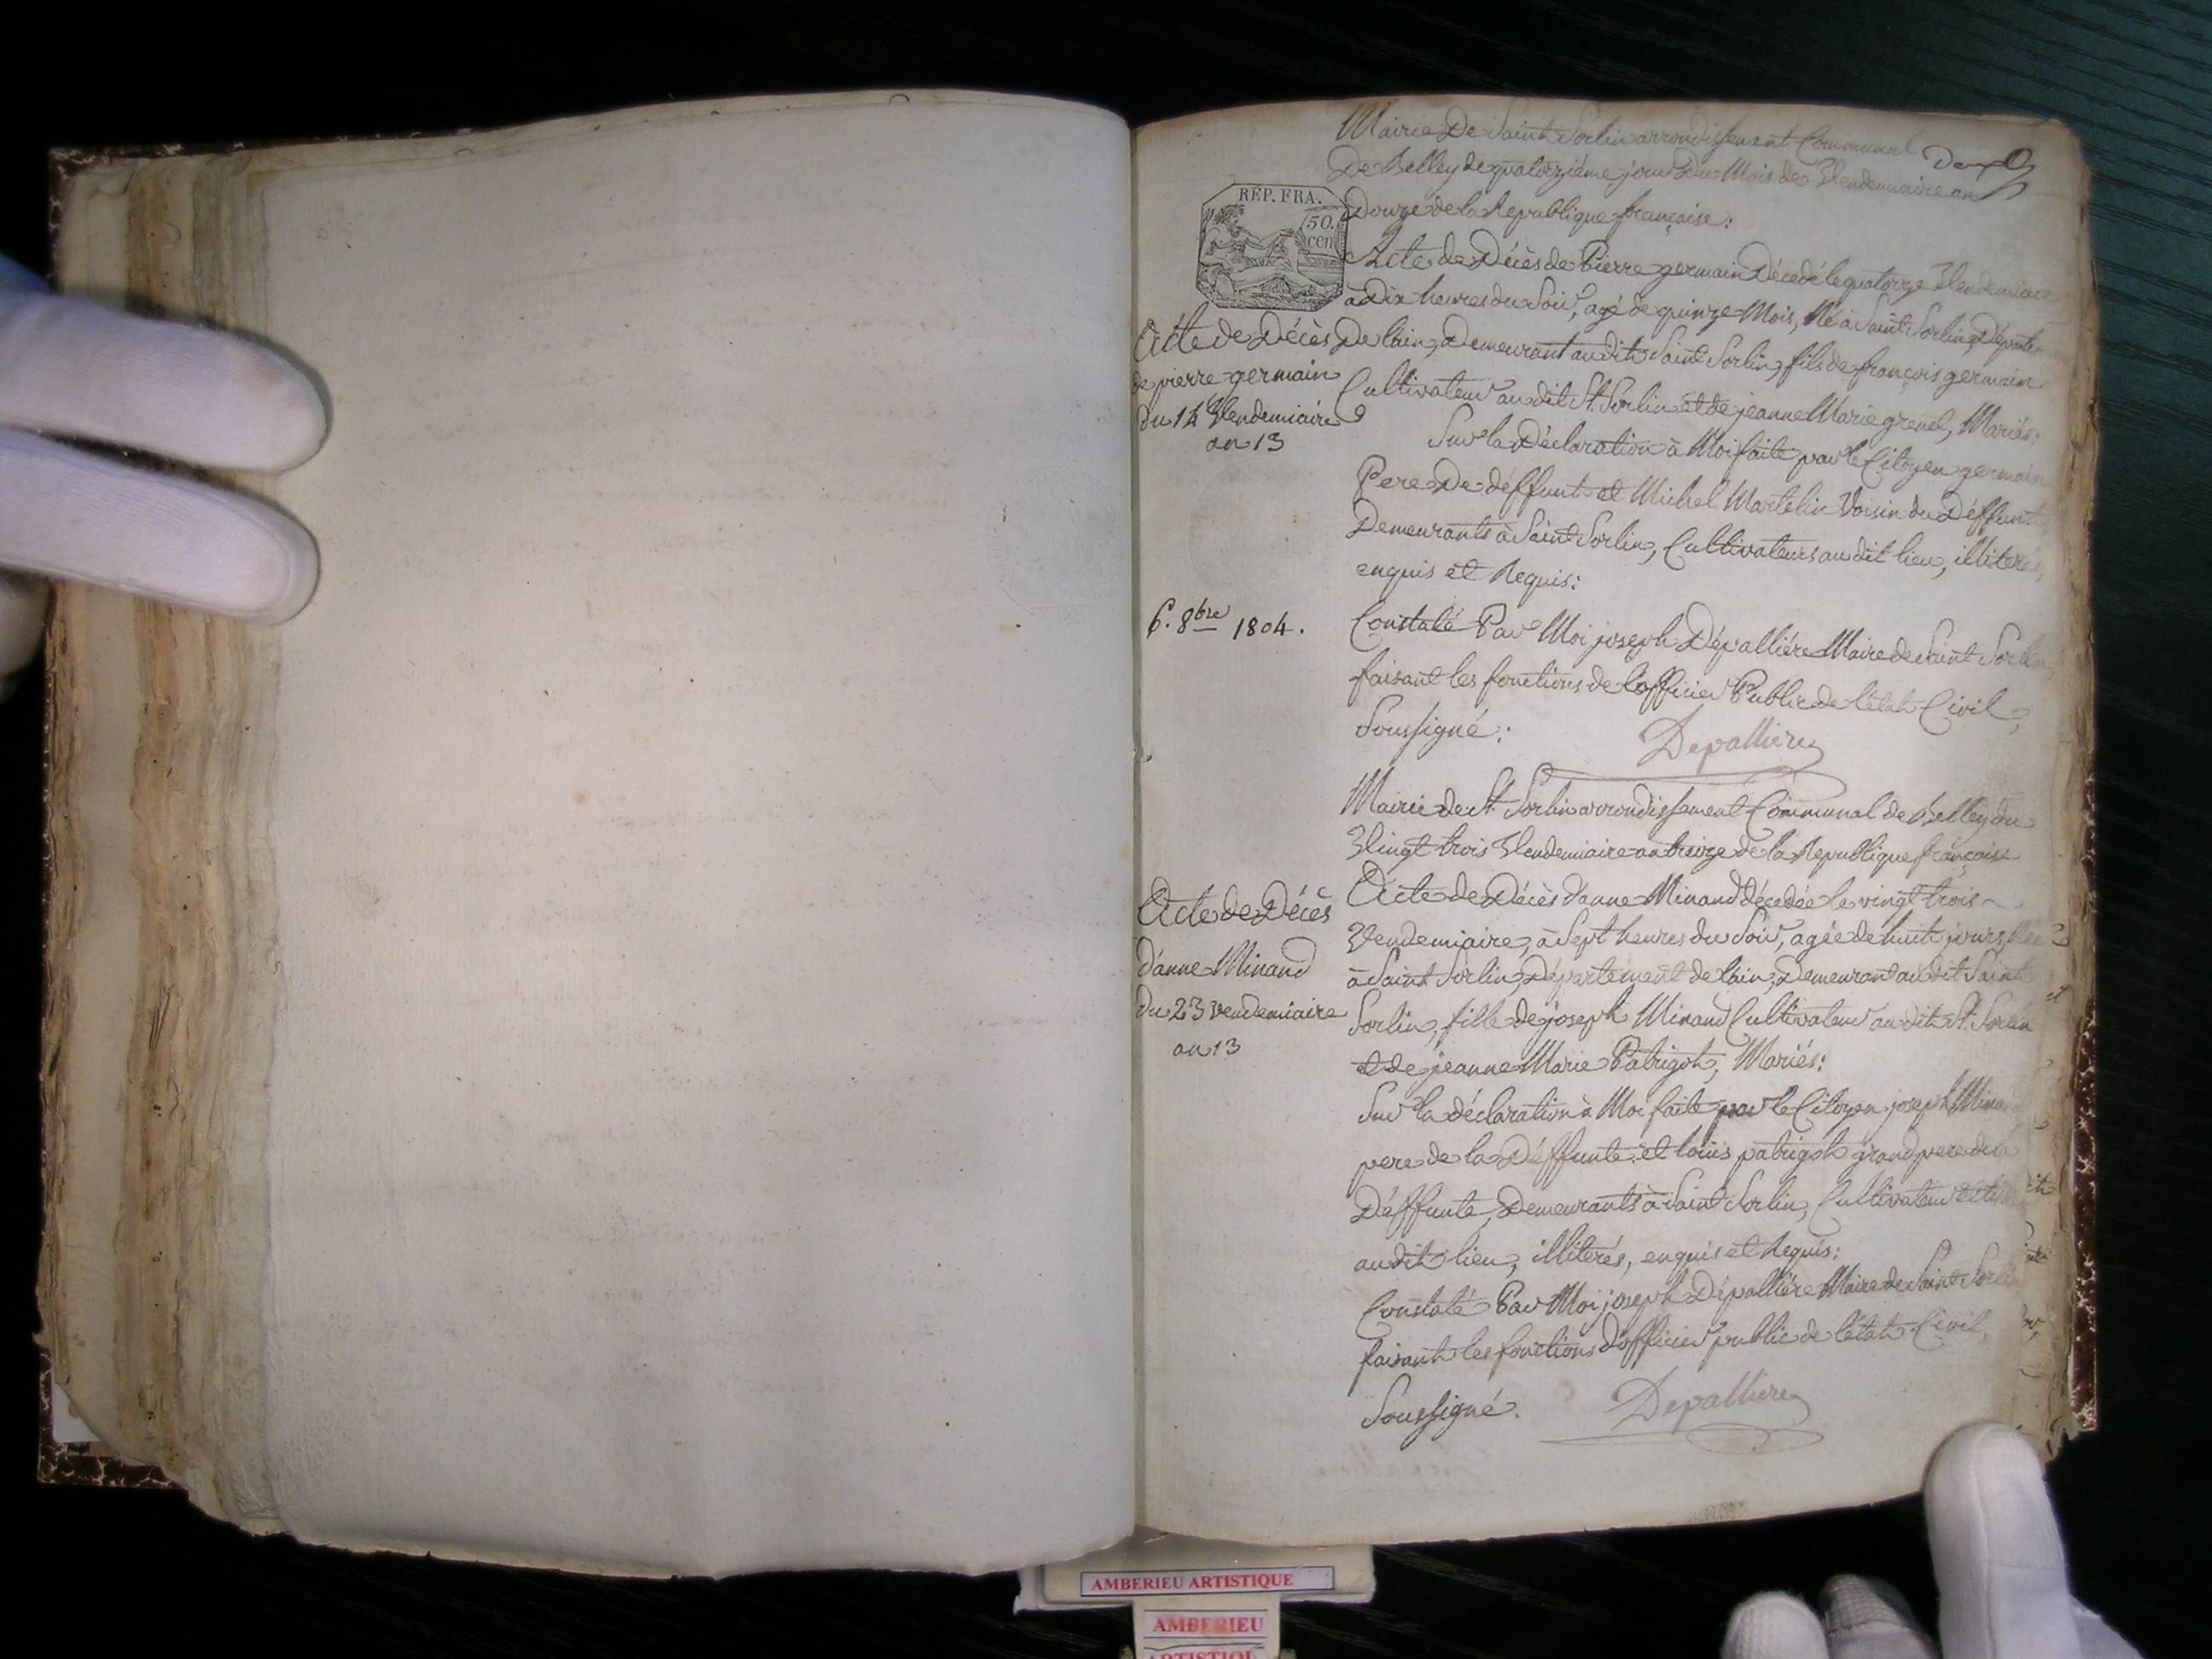 Mairie De Saint Sorlin arrondissement Communal
Deux
De Belley de quatorziéme jour du Mois de Vendemiaire an
Douze de la Republique française:
RÉP. FRA.
50.
cen
Acte de Décès de Pierre germain Décedé le quatorze Vendemiaire
à Dix heures du Soir, agé de quinze Mois, Né à Saint Sorlin, Départem
De lain, Demeurant audit Saint Sorlin, fils de françois germain
Cultivateur au dit St. Sorlin et de jeanne Marie grenel, Mariés:
Sur la Déclaration à Moi faite par le Citoyen germain
Pere De déffunt et Michel Martelin Voisin du Déffunt,
Demeurants à Saint Sorlin, Cultivateurs au dit lieu, illiterés,
enquis et Requis:
Constaté Par Moi joseph Dépalliére Maire de Saint Sorlin
faisant les fonctions de lofficier Public de l'état Civil,
Soussigné:
Depalliere
Acte de Décès
de pierre germain
du 14 Vendemiaire
an 13
6. 8bre 1804.
Mairie de St. Sorlin arrondissement Communal de Belley du
Vingt trois Vendemiaire an treize de la Republique française
Acte de Décès d'anne Minand décedée le vingt trois
Vendemiaire, à Sept heures du Soir, agée de huit jours, Née
à Saint Sorlin, Département de lain, Demeurant au dit Saint
Sorlin, fille de joseph Minand Cultivateur au dit St. Sorlin
et de jeanne Marie Patrigot, Mariés:
Sur la déclaration à Moi faite par le Citoyen joseph Minand
pere de la Déffunte et louis patrigot grand pere de la
Déffunte, Demeurants à Saint Sorlin, Cultivateur
au dit lieu, illiterés, enquis et Requis:
Constaté Par Moi joseph Dépalliére Maire de Saint Sorlin
faisant les fonctions d'officier public de létat Civil,
Soussigné.
Depalliere
Acte de Décès
d'anne Minand
du 23 vendemiaire
an 13
AMBERIEU ARTISTIQUE
AMBERIEU
ARTISTIQUE